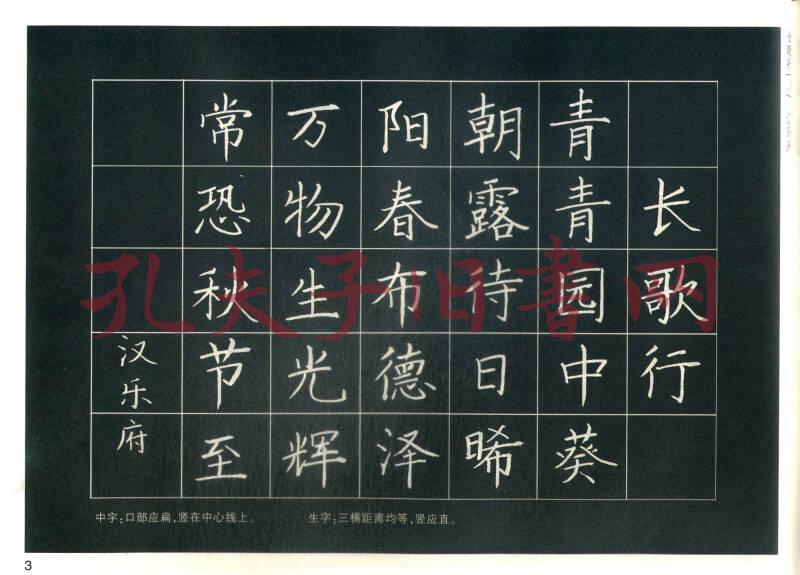 长歌行
青青园中葵
朝露待日晞
阳春布德泽
万物生光辉
常恐秋节至
汉乐府
中字:口部应扁,竖在中心线上。
生字:三横距离均等,竖应直。
孔夫子旧书网
3